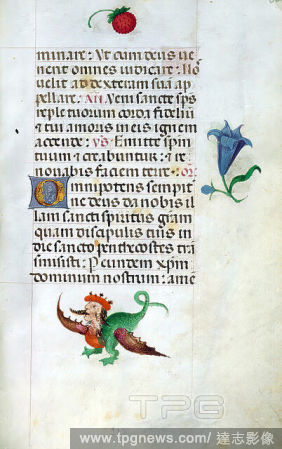 minare: Ut cum deus ue
nerit omnes iudicare: No
velit ad dexteram suā ap
pellare. An. Veni sancte sps
reple tuorum corda fideliū
& tui amoris in eis ignem
accende: vs. Emitte spiri
tuum & creabuntur: & re
nouabis faciem terre: or
Omnipotens sempit
ne deus da nobis il
lam sancti spiritus gratiam
quam discipulis tuis in
die sancto penthecostes trā
smisisti: P eundem xpm
dominum nostrum: ame
TPG
www.tpgnews.com/ 達志影像